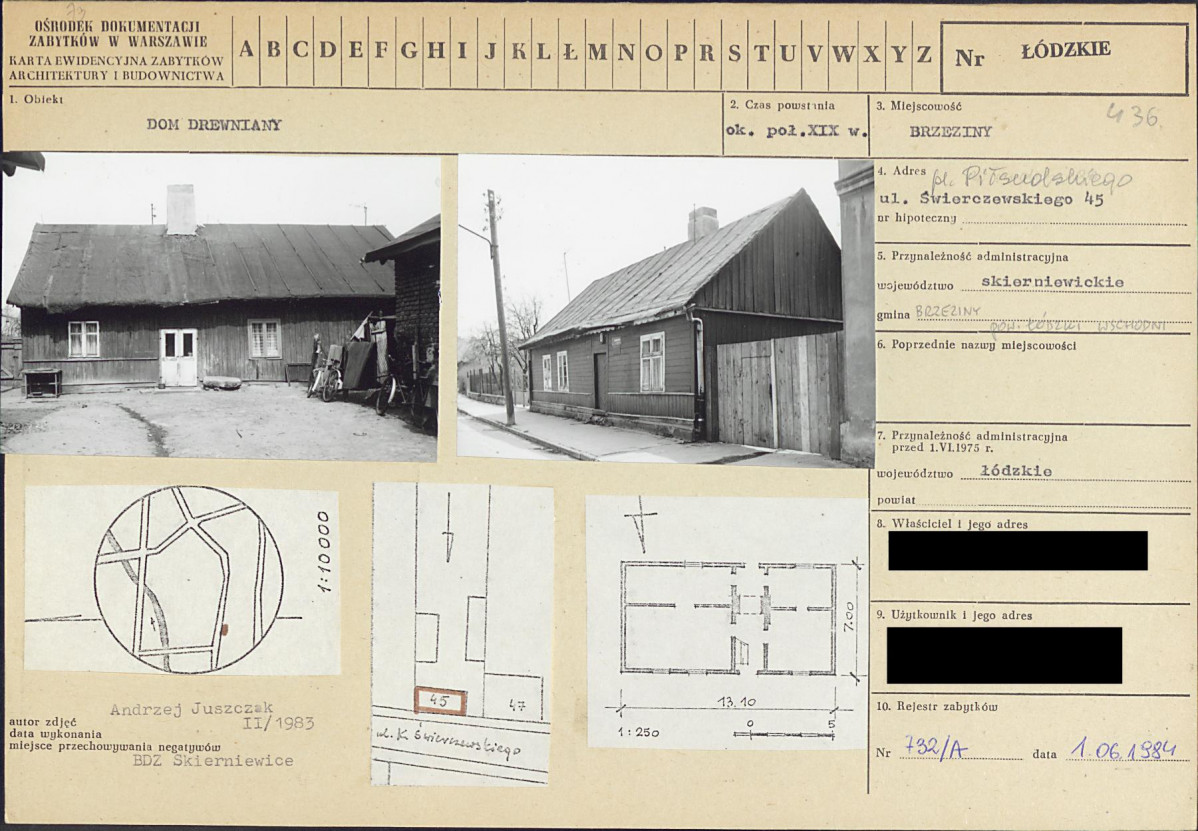 73
OŚRODEK DOKUMENTACJI
ZABYTKÓW W WARSZAWIE
KARTA EWIDENCYJNA ZABYTKÓW
ARCHITEKTURY I BUDOWNICTWA
A B C D E F G H I J K L Ł M N O P R S T U V W X Y Z
Nr ŁÓDZKIE
1. Obiekt
DOM DREWNIANY
2. Czas powstania
ok. poł.XIX w.
3. Miejscowość
436.
BRZEZINY
4. Adres pl. Piłsudskiego
ul. Świerczewskiego 45
nr hipoteczny
5. Przynależność administracyjna
województwo skierniewickie
gmina BRZEZINY
pow. ŁÓDZKI WSCHODNI
6. Poprzednie nazwy miejscowości
7. Przynależność administracyjna
przed 1.VI.1975 r.
województwo łódzkie
powiat
8. Właściciel i jego adres
9. Użytkownik i jego adres
10. Rejestr zabytków
Nr 732/A data 1.06.1984
1:10000
45
47
ul. K. Świerczewskiego
7.00
13.10
1:250
0 5
Andrzej Juszczak
autor zdjęć II/1983
data wykonania
miejsce przechowywania negatywów
BDZ Skierniewice